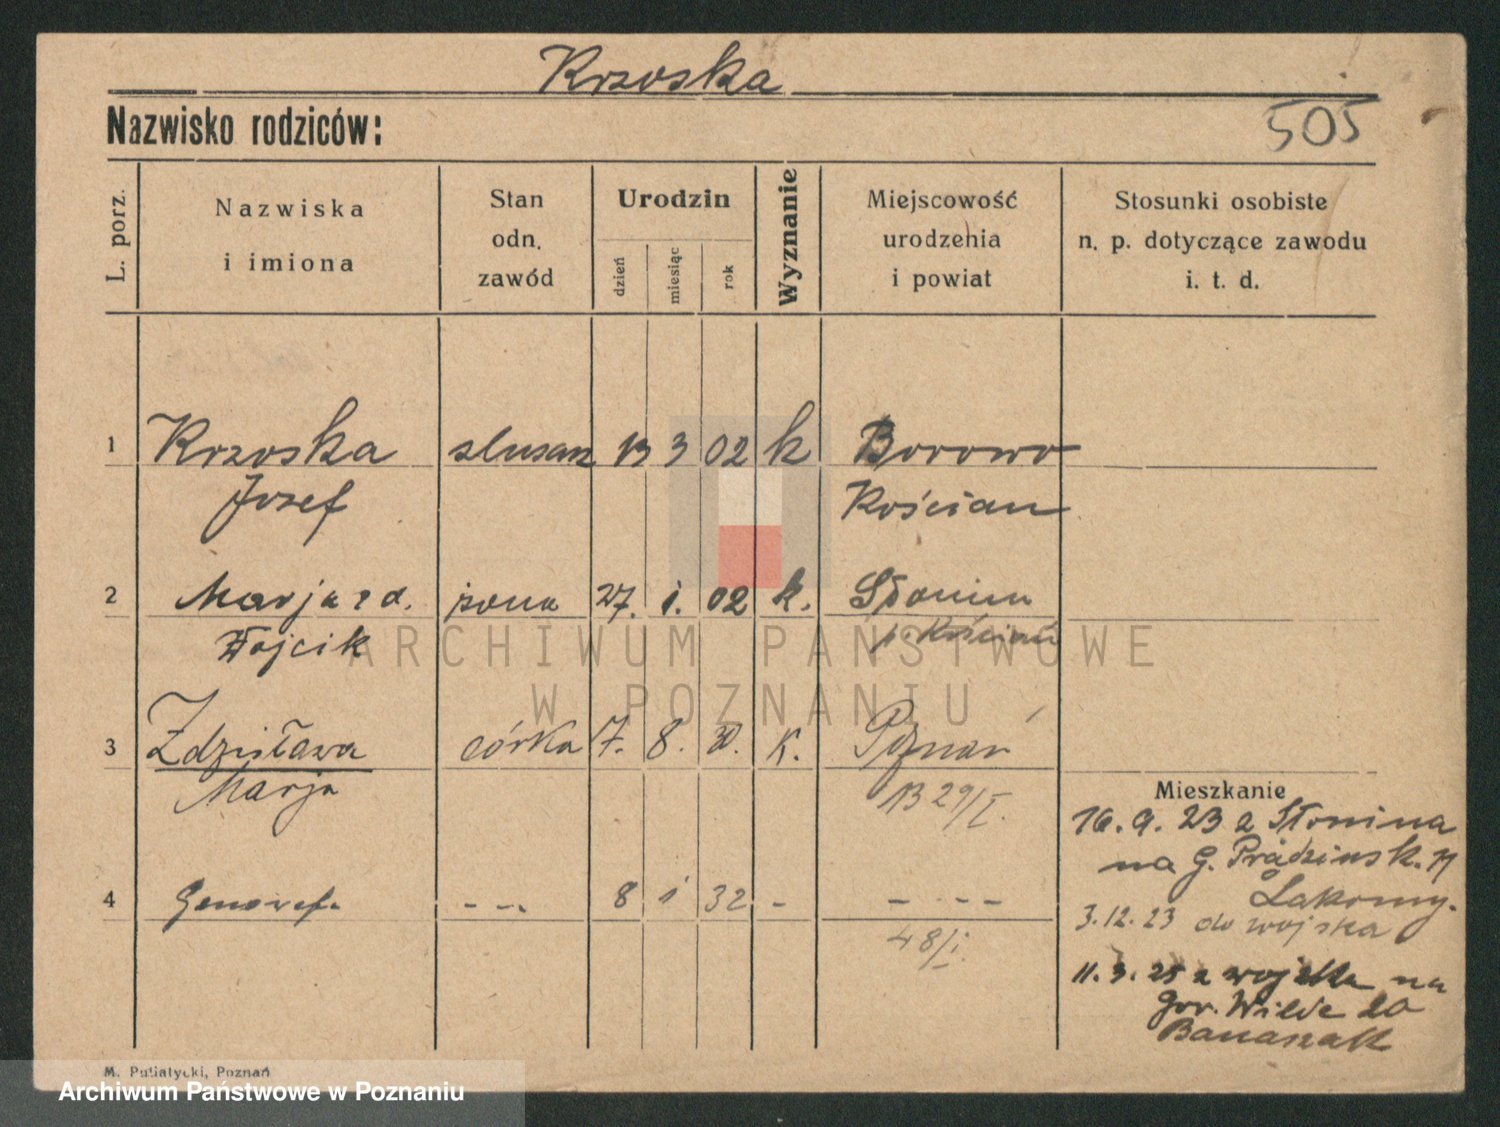 Krzoska
Nazwisko rodziców:
505
L. porz.
Nazwiska
i imiona
Stan
odn.
zawód
Urodzin
dzień
miesiąc
rok
Wyznanie
Miejscowość
urodzenia
i powiat
Stosunki osobiste
n. p. dotyczące zawodu
i. t. d.
1 Krzoska ślusarz 13 3 02 k Borowo
Józef Kościan
2 Marja z d. żona 27. 1. 02 k. Słonin
Wojcik p. Kościan
3 Zdzisława córka 7. 8. 30. k. Poznań
Marja 13 29/I.
Mieszkanie
16. 9. 23 z Słonina
na G. Prądzińsk.
Łakomy.
4 Genowefa - - 8 1 32 - - - -
3.12.23 do wojska
48/I.
11. 3. 25 z wojska na
Gór. Wilde 20
Banaszak
M. Putiatycki, Poznań
ARCHIWUM PAŃSTWOWE
W POZNANIU
Archiwum Państwowe w Poznaniu